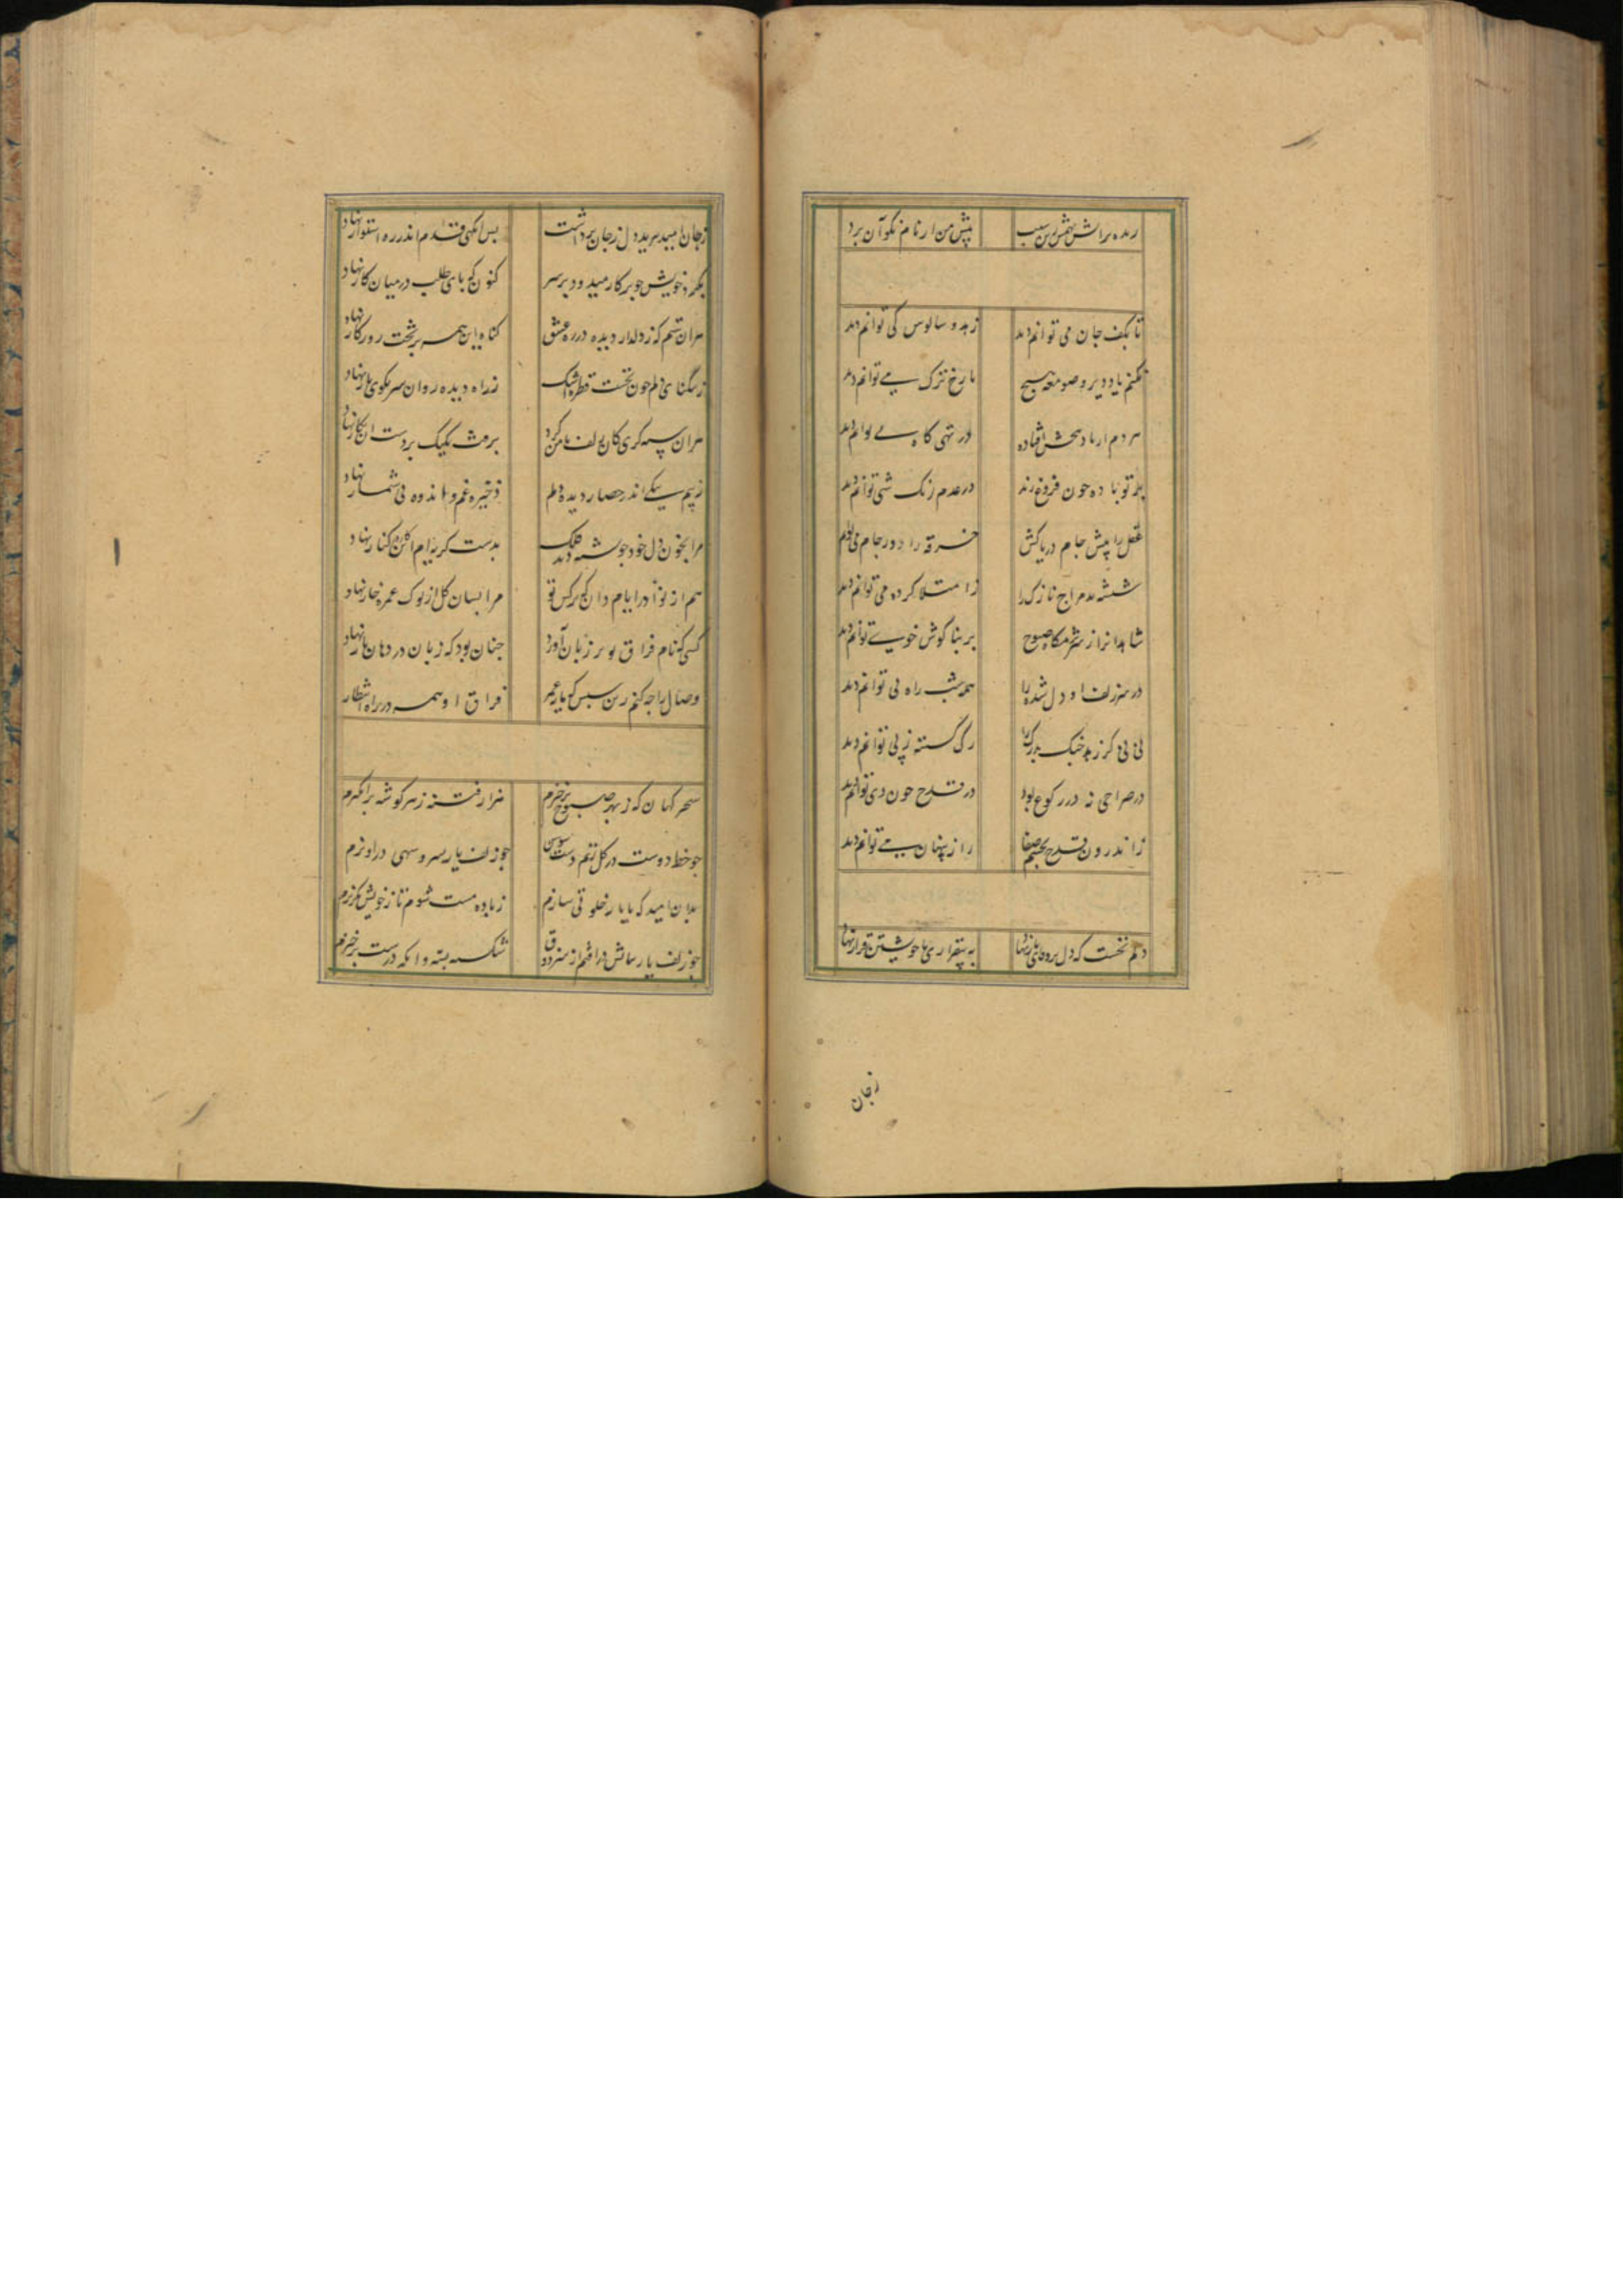 پیش من ار نام نکو آن برد
تا بکف جان می توانم دید
زهد و سالوس کی توانم دید
نکنم یاد دیر و صومعه هیچ
با رخ ترک می توانم دید
در تهی گاه می توانم دید
پرتو باده چون فروغ زند
در عدم رنگ شی توانم دید
عقل را پیش جام دریاکش
خرقه را دور جام می توانم
ز امتلا کرده می توانم دید
شاهدانرا ز شرمگاه صبوح
بر بناگوش خوی توانم دید
در سر زلف او دل شده را
همه شب راه پی توانم دید
نی نی کز زهد خنک
رگ گسسته ز پی توانم دید
در صراحی نه در رکوع بود
در قدح خون وی توانم دید
ز اندرون قدح بچشم صفا
راز پنهان می توانم دید
دلم نخست که دل بر وفای یار نهاد
به بیقراری با خویشتن قرار نهاد
زجان
زجان امید ببرید و دل زجان برداشت
پس آنگهی قدم اندر ره استوار نهاد
بگرد خویش چو پرگار میدود بر سر
کنون که پای طلب در میان کار نهاد
هر آن ستم که ز دلدار دیده در ره عشق
گناه این همه بر بخت و روزگار نهاد
ز تنگنای دلم چون نخست قطره اشک
ز راه دیده روان سر بکوی یار نهاد
هر آن سیه گری کان زلف با من کرد
برفت یکیک بر دست آن نگار نهاد
ز بیم یکی اندر حصار دیده دلم
ذخیره غم و اندوه بی شمار نهاد
مرا بخون دل خود چو تشنه دید فلک
بدست گریه ام اکنون در کنار نهاد
هم از نوادر ایام دان که نرگس تو
مرا بسان گل از نوک غمزه خار نهاد
کسی که نام فراق تو بر زبان آورد
چنان بود که زبان در دهان مار نهاد
وصال را چه کنم زین سپس که یار عمر
فراق او همه در راه انتظار
سحرگهان که ز بهر صبوح برخیزم
هزار فتنه ز هر گوشه برانگیزم
چو خط دوست در گل زنم دست هوس
چو زلف یار بسرو سهی درآویزم
بدان امید که با یار خلوتی سازم
ز باده مست شوم تا ز خویش بگریزم
چو زلف یار بپاش درافتم از سر ذوق
شکسته بسته و آنگه درست برخیزم